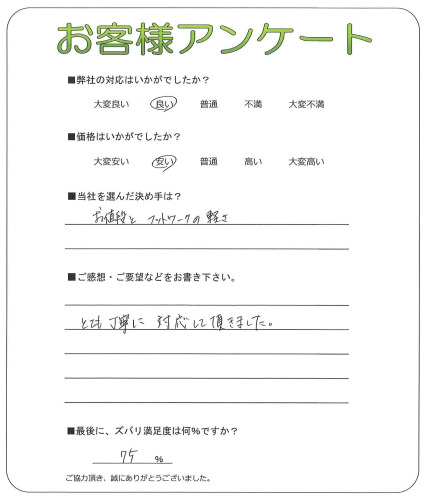 お客様アンケート
■弊社の対応はいかがでしたか?
大変良い 良い 普通 不満 大変不満
■価格はいかがでしたか?
大変安い 安い 普通 高い 大変高い
■当社を選んだ決め手は?
お値段と フットワークの軽さ
■ご感想・ご要望などをお書き下さい。
とても丁寧に 対応して頂きました。
■最後に、ズバリ満足度は何%ですか?
75 %
ご協力頂き、誠にありがとうございました。